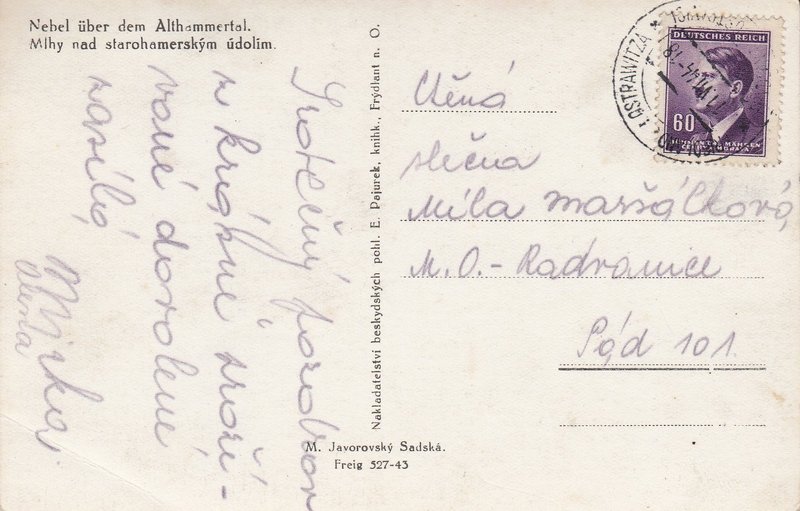 Nebel über dem Althammertal.
Mlhy nad starohamerským údolím.
Srdečný pozdrav
z krásné proží-
vané dovolené
zasílá
Mirka
Alena
Nakladatelství beskydských pohl. E. Pajurek, knihk., Frýdlant n. O.
M. Javorovský Sadská.
Freig 527-43
Ctěná
slečna
Míla Maršálková,
M. O. - Radvanice
Pód 101.
DEUTSCHES REICH
60
BÖHMEN UND MÄHREN
ČECHY A MORAVA
OSTRAWITZA